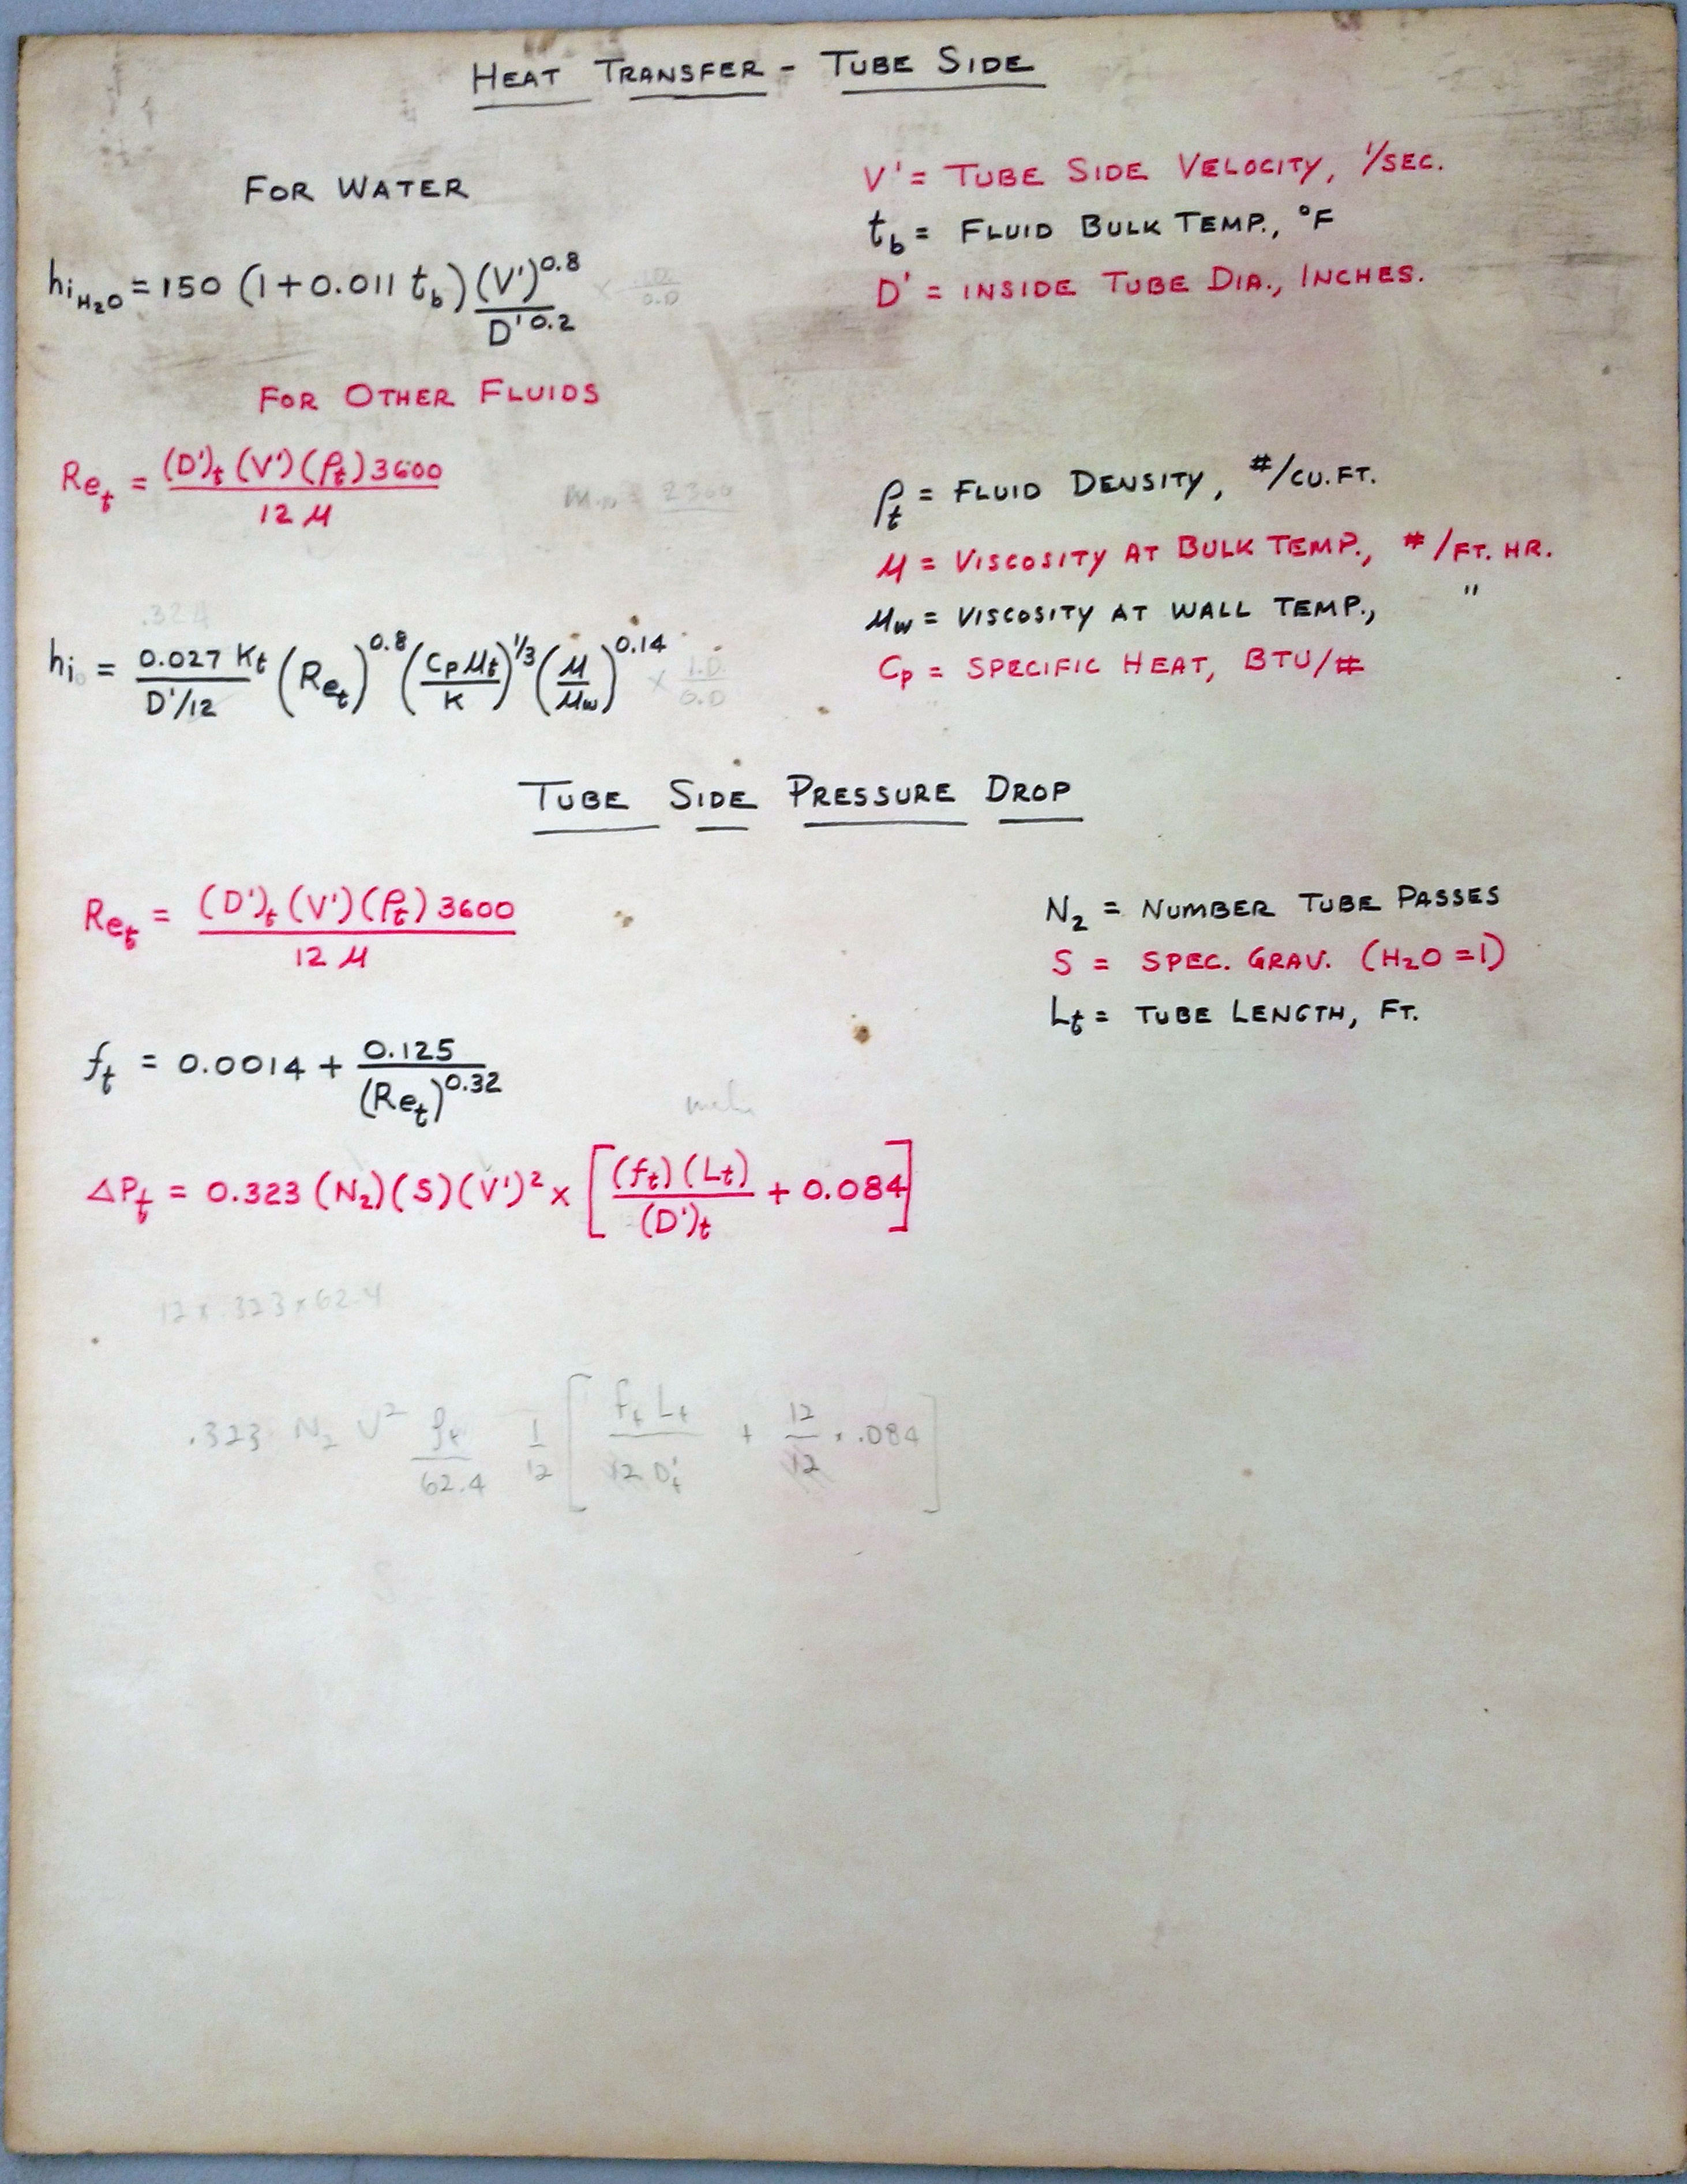 HEAT TRANSFER - TUBE SIDE
FOR WATER
hi_H2O = 150 (1+0.011 t_b) (V')^0.8 / D'^0.2
V' = TUBE SIDE VELOCITY, '/SEC.
t_b = FLUID BULK TEMP., °F
D' = INSIDE TUBE DIA., INCHES.
FOR OTHER FLUIDS
Re_t = (D')_t (V') (ρ_t) 3600 / 12 μ
Min = 2300
ρ_t = FLUID DENSITY, #/CU.FT.
μ = VISCOSITY AT BULK TEMP., #/FT. HR.
μ_w = VISCOSITY AT WALL TEMP., "
C_p = SPECIFIC HEAT, BTU/#
.324
hi_o = 0.027 K_t / D'/12 (Re_t)^0.8 (C_p μ_t / K)^1/3 (μ / μ_w)^0.14 × I.D. / O.D
TUBE SIDE PRESSURE DROP
Re_t = (D')_t (V') (ρ_t) 3600 / 12 μ
N_2 = NUMBER TUBE PASSES
S = SPEC. GRAV. (H2O = 1)
L_t = TUBE LENGTH, FT.
f_t = 0.0014 + 0.125 / (Re_t)^0.32
ΔP_t = 0.323 (N_2) (S) (V')² × [(f_t) (L_t) / (D')_t + 0.084]
12 x .323 x 62.4
.323 N_2 V² ρ_t / 62.4 1/12 [f_t L_t / 12 D'_t + 12/12 × .084]